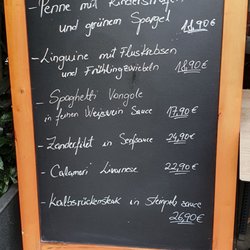 Penne mit Rinderstreifen
und grünem Spargel 18,90€
- Linguine mit Flusskrebsen
und Frühlingszwiebeln 18,90€
- Spaghetti Vongole
in feinen Weisswein Sauce 17,90€
- Zanderfilet in Senfsauce 24,90€
- Calamari Livornese 22,90€
- Kalbsrückensteak in Steinpilzsauce
26,90€